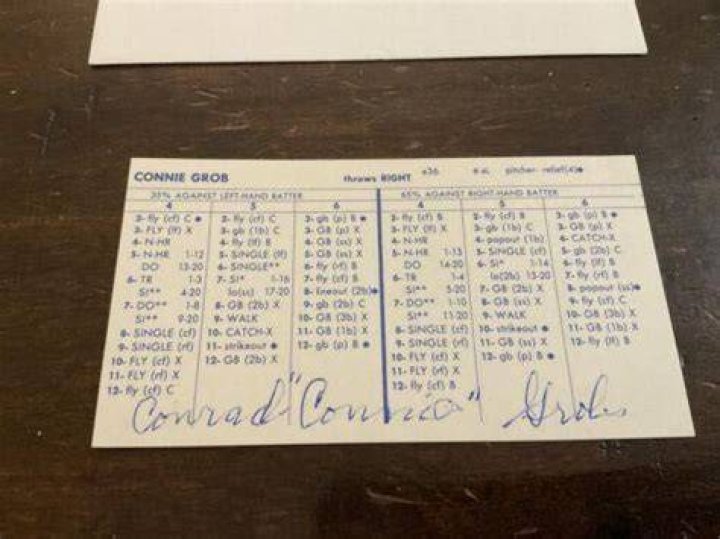 CONNIE GROB throws RIGHT e36 pitcher- relief(4)●
35% AGAINST LEFT-HAND BATTER 65% AGAINST RIGHT-HAND BATTER
4 5 6 4 5 6
2- fly (cf) C ●
3- FLY (lf) X
4- N-HR
5- N-HR 1-12
DO 13-20
6- TR 1-3
SI** 4-20
7- DO** 1-8
SI** 9-20
8- SINGLE (cf)
9- SINGLE (rf)
10- FLY (cf) X
11- FLY (rf) X
12- fly (cf) C
2- fly (cf) C
3- gb (1b) C
4- fly (lf) B
5- SINGLE (lf)
6- SINGLE**
7- SI* 1-16
lo(ss) 17-20
8- GB (2b) X
9- WALK
10- CATCH-X
11- strikeout ●
12- GB (2b) X
2- gb (p) B ●
3- GB (p) X
4- GB (ss) X
5- GB (ss) X
6- fly (rf) B
7- fly (lf) B
8- lineout (2b)●
9- gb (2b) C
10- GB (3b) X
11- GB (1b) X
12- gb (p) B ●
2- fly (cf) B
3- FLY (lf) X
4- N-HR
5- N-HR 1-13
DO 14-20
6- TR 1-4
SI** 5-20
7- DO** 1-10
SI** 11-20
8- SINGLE (cf)
9- SINGLE (rf)
10- FLY (cf) X
11- FLY (rf) X
12- fly (cf) B
2- fly (cf) B
3- gb (1b) X
4- popout (1b)
5- SINGLE (cf)
6- SI* 1-14
lo(2b) 15-20
7- GB (2b) X
8- GB (ss) X
9- WALK
10- strikeout ●
11- GB (ss) X
12- gb (p) B ●
2- gb (p) B ●
3- GB (p) X
4- CATCH-X
5- gb (2b) C
6- fly (rf) B
7- fly (lf) B
8- popout (ss)●
9- fly (cf) C
10- GB (3b) X
11- GB (1b) X
12- fly (lf) B
Conrad "Connie" Grob